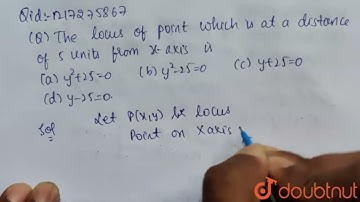 Qid:-1217275867
(Q) The locus of point which is at a distance
of 5 units from x-axis is
(a) y²+25=0 (b) y²-25=0 (c) y+25=0
(d) y-25=0.
Sol Let P(x,y) be locus
Point on x axis
doubtnut